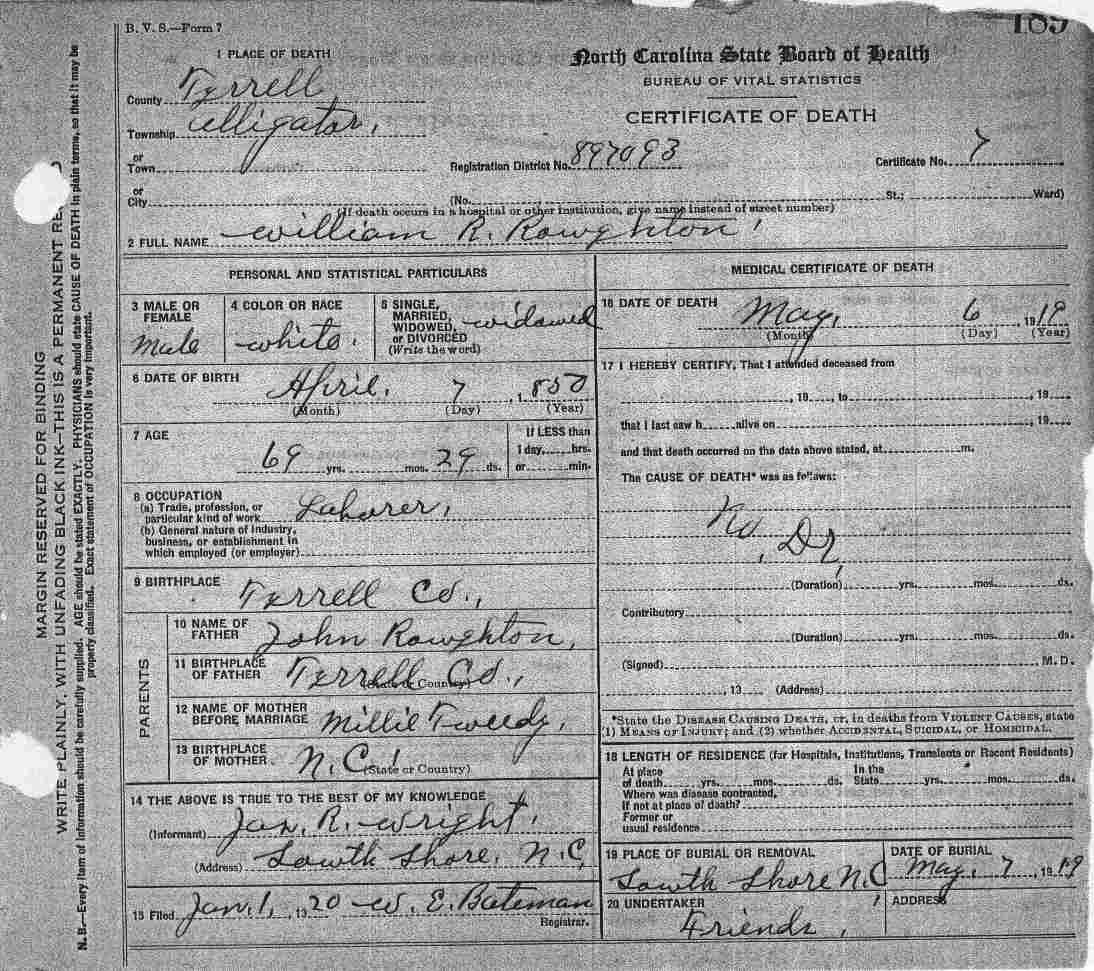 B. V. S.—Form 7
189
1 PLACE OF DEATH
North Carolina State Board of Health
BUREAU OF VITAL STATISTICS
CERTIFICATE OF DEATH
County Tyrrell
Township Alligator,
or
Town
Registration District No. 897093
Certificate No. 7
or
City (No. St.; Ward)
(If death occurs in a hospital or other institution, give name instead of street number)
2 FULL NAME William R. Rowghton
PERSONAL AND STATISTICAL PARTICULARS
3 MALE OR
FEMALE
Male
4 COLOR OR RACE
White.
5 SINGLE,
MARRIED,
WIDOWED,
or DIVORCED
(Write the word)
Widowed
6 DATE OF BIRTH April. 7 , 1850
(Month) (Day) (Year)
7 AGE
69 yrs. mos. 29 ds.
If LESS than
1 day, hrs.
or min.
8 OCCUPATION
(a) Trade, profession, or
particular kind of work Laborer,
(b) General nature of Industry,
business, or establishment in
which employed (or employer)
9 BIRTHPLACE
Tyrrell Co.,
PARENTS
10 NAME OF
FATHER John Rowghton,
11 BIRTHPLACE
OF FATHER Tyrrell Co.,
(State or Country)
12 NAME OF MOTHER
BEFORE MARRIAGE Millie Tweedy,
13 BIRTHPLACE
OF MOTHER N.C.
(State or Country)
14 THE ABOVE IS TRUE TO THE BEST OF MY KNOWLEDGE
(Informant) Jan. R. Wright.
(Address) Sowth Shore, N.C,
15 Filed Jan. 1, , 1920 W. E. Bateman
Registrar.
MEDICAL CERTIFICATE OF DEATH
16 DATE OF DEATH May, 6 , 1919
(Month) (Day) (Year)
17 I HEREBY CERTIFY, That I attended deceased from
, 19 to , 19
that I last saw h alive on , 19
and that death occurred on the date above stated, at m.
The CAUSE OF DEATH* was as follows:
No, Dr,
(Duration) yrs. mos. ds.
Contributory
(Duration) yrs. mos. ds.
(Signed) , M. D.
, 19 (Address)
*State the DISEASE CAUSING DEATH, or, in deaths from VIOLENT CAUSES, state
(1) MEANS OF INJURY; and (2) whether ACCIDENTAL, SUICIDAL, or HOMICIDAL.
18 LENGTH OF RESIDENCE (for Hospitals, Institutions, Transients or Recent Residents)
At place
of death yrs. mos. ds.
In the
State yrs. mos. ds.
Where was disease contracted,
If not at place of death?
Former or
usual residence
19 PLACE OF BURIAL OR REMOVAL
Sowth Shore N.C,
DATE OF BURIAL
May, 7 1919
20 UNDERTAKER
Friends,
ADDRESS
MARGIN RESERVED FOR BINDING
WRITE PLAINLY, WITH UNFADING BLACK INK—THIS IS A PERMANENT RE
N. B.—Every item of information should be carefully supplied. AGE should be stated EXACTLY. PHYSICIANS should state CAUSE OF DEATH in plain terms, so that it may be
properly classified. Exact statement of OCCUPATION is very important.